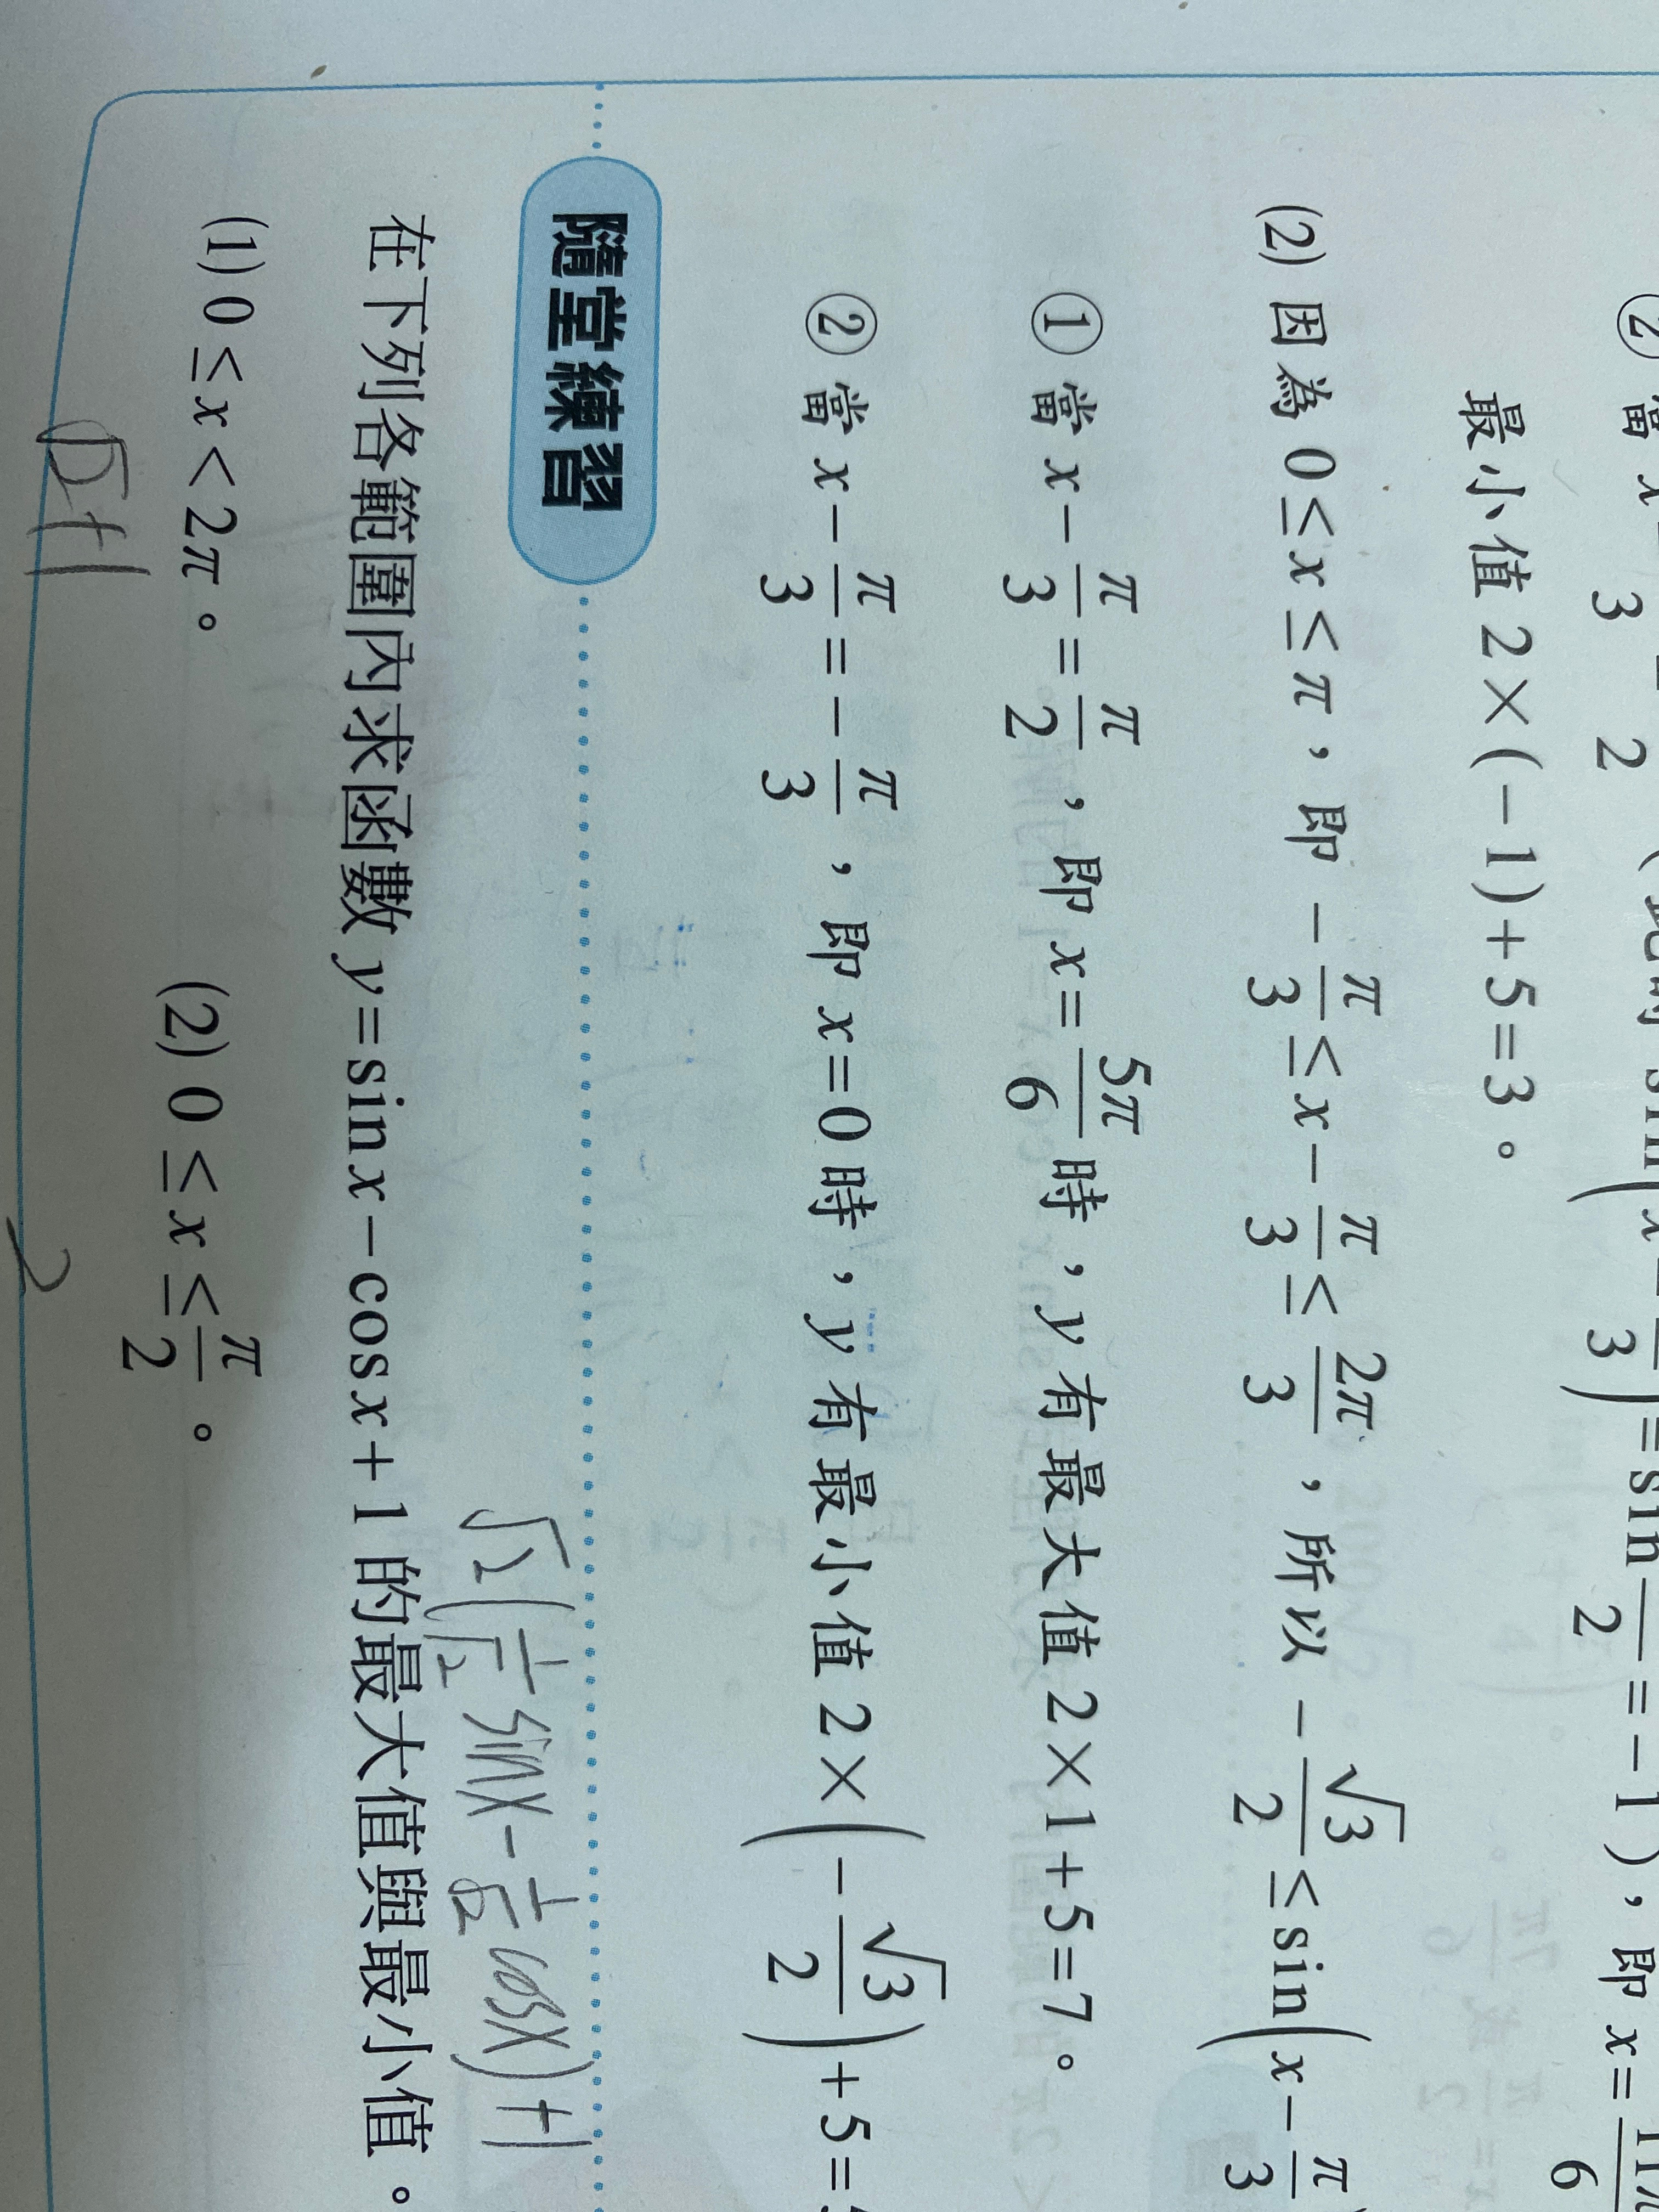 ② 當 x − π/3 = 3π/2 ( 此時 sin(x − π/3) = sin 3π/2 = −1 ),即 x = 11π/6
最小值 2×(−1)+5=3。
(2) 因為 0≤x≤π,即 −π/3 ≤ x − π/3 ≤ 2π/3,所以 −√3/2 ≤ sin(x − π/3)
① 當 x − π/3 = π/2,即 x = 5π/6 時,y 有最大值 2×1+5=7。
② 當 x − π/3 = −π/3,即 x=0 時,y 有最小值 2×(−√3/2)+5=
隨堂練習
√2(1/√2 sinx − 1/√2 cosx)+1
在下列各範圍內求函數 y=sin x−cos x+1 的最大值與最小值。
(1) 0≤x<2π。 (2) 0≤x≤π/2。
+1 2